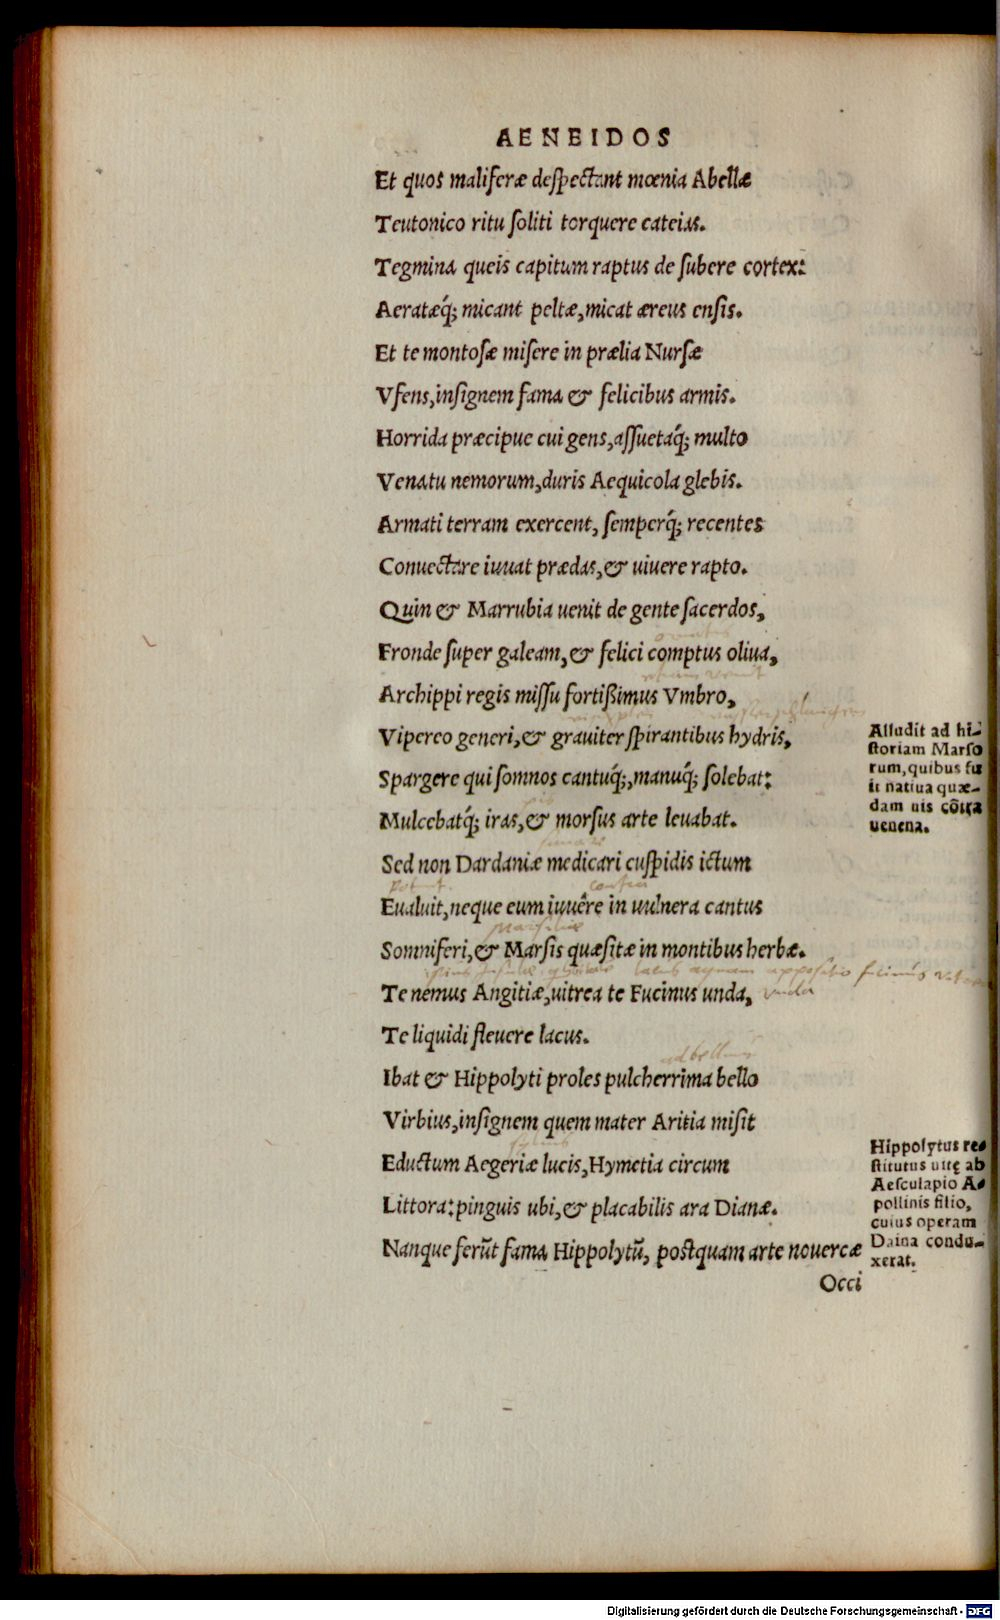 AENEIDOS
Et quos maliferæ deſpectant mœnia Abellæ
Teutonico ritu ſoliti torquere cateias.
Tegmina queis capitum raptus de ſubere cortex:
Aeratæq́; micant peltæ, micat æreus enſis.
Et te montoſæ miſere in prælia Nurſæ
Vfens, inſignem fama & felicibus armis.
Horrida præcipue cui gens, aſſuetaq́; multo
Venatu nemorum, duris Aequicola glebis.
Armati terram exercent, ſemperq́; recentes
Conuectare iuuat prædas, & uiuere rapto.
Quin & Marrubia uenit de gente ſacerdos,
ornatus
Fronde ſuper galeam, & felici comptus oliua,
Archippi regis miſſu fortißimus Vmbro,
Vipereo generi, & grauiter ſpirantibus hydris,
Spargere qui ſomnos cantuq́;, manuq́; ſolebat:
Mulcebatq́; iras, & morſus arte leuabat.
Sed non Dardaniæ medicari cuſpidis ictum
Eualuit, neque eum iuuêre in uulnera cantus
Somniferi, & Marſis quæſitæ in montibus herbæ.
Te nemus Angitiæ, uitrea te Fucinus unda,
Te liquidi fleuere lacus.
ad bellum
Ibat & Hippolyti proles pulcherrima bello
Virbius, inſignem quem mater Aritia miſit
Eductum Aegeriæ lucis, Hymetia circum
Littora: pinguis ubi, & placabilis ara Dianæ.
Nanque ferūt fama Hippolytū, poſtquam arte nouercæ
Occi
Alludit ad hi-
ſtoriam Marſo
rum, quibus fu
it natiua quæ-
dam uis cōtra
uenena.
Hippolytus re-
ſtitutus uitę ab
Aeſculapio A-
pollinis filio,
cuius operam
Daina condu-
xerat.
Digitalisierung gefördert durch die Deutsche Forschungsgemeinschaft - DFG